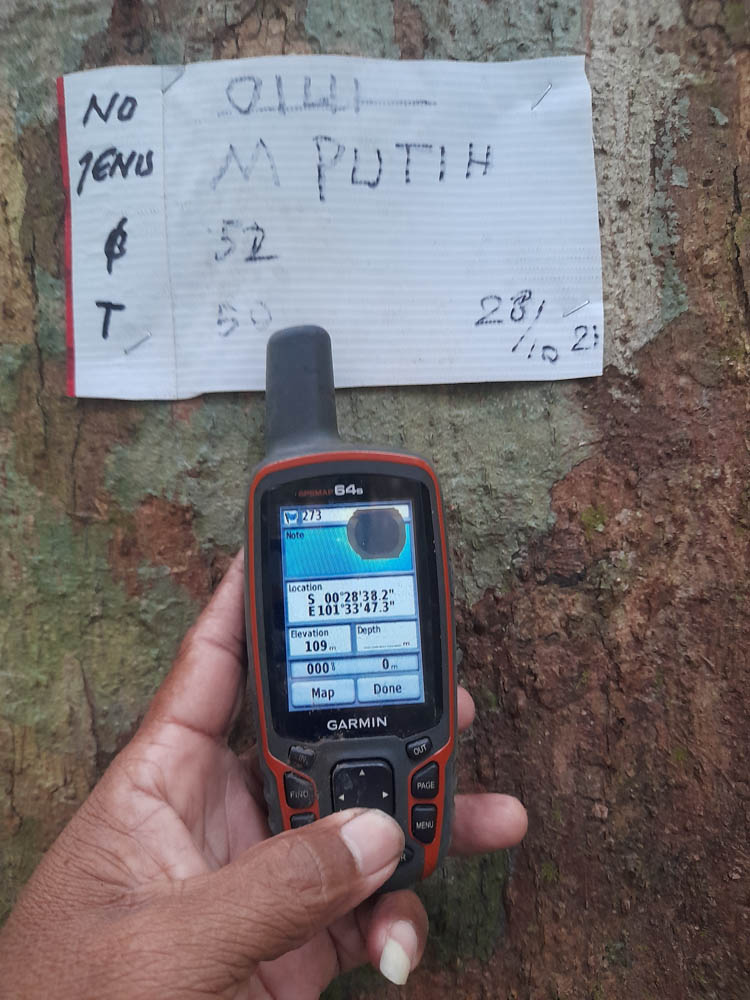 NO 0141
JENIS M PUTIH
ϕ 52
T 50
28/10 21
GPSMAP 64s
273
Note
Location
S 00°28'38.2"
E101°33'47.3"
Elevation Depth
109m ______m
0m
Map Done
GARMIN
IN OUT
FIND PAGE
MENU